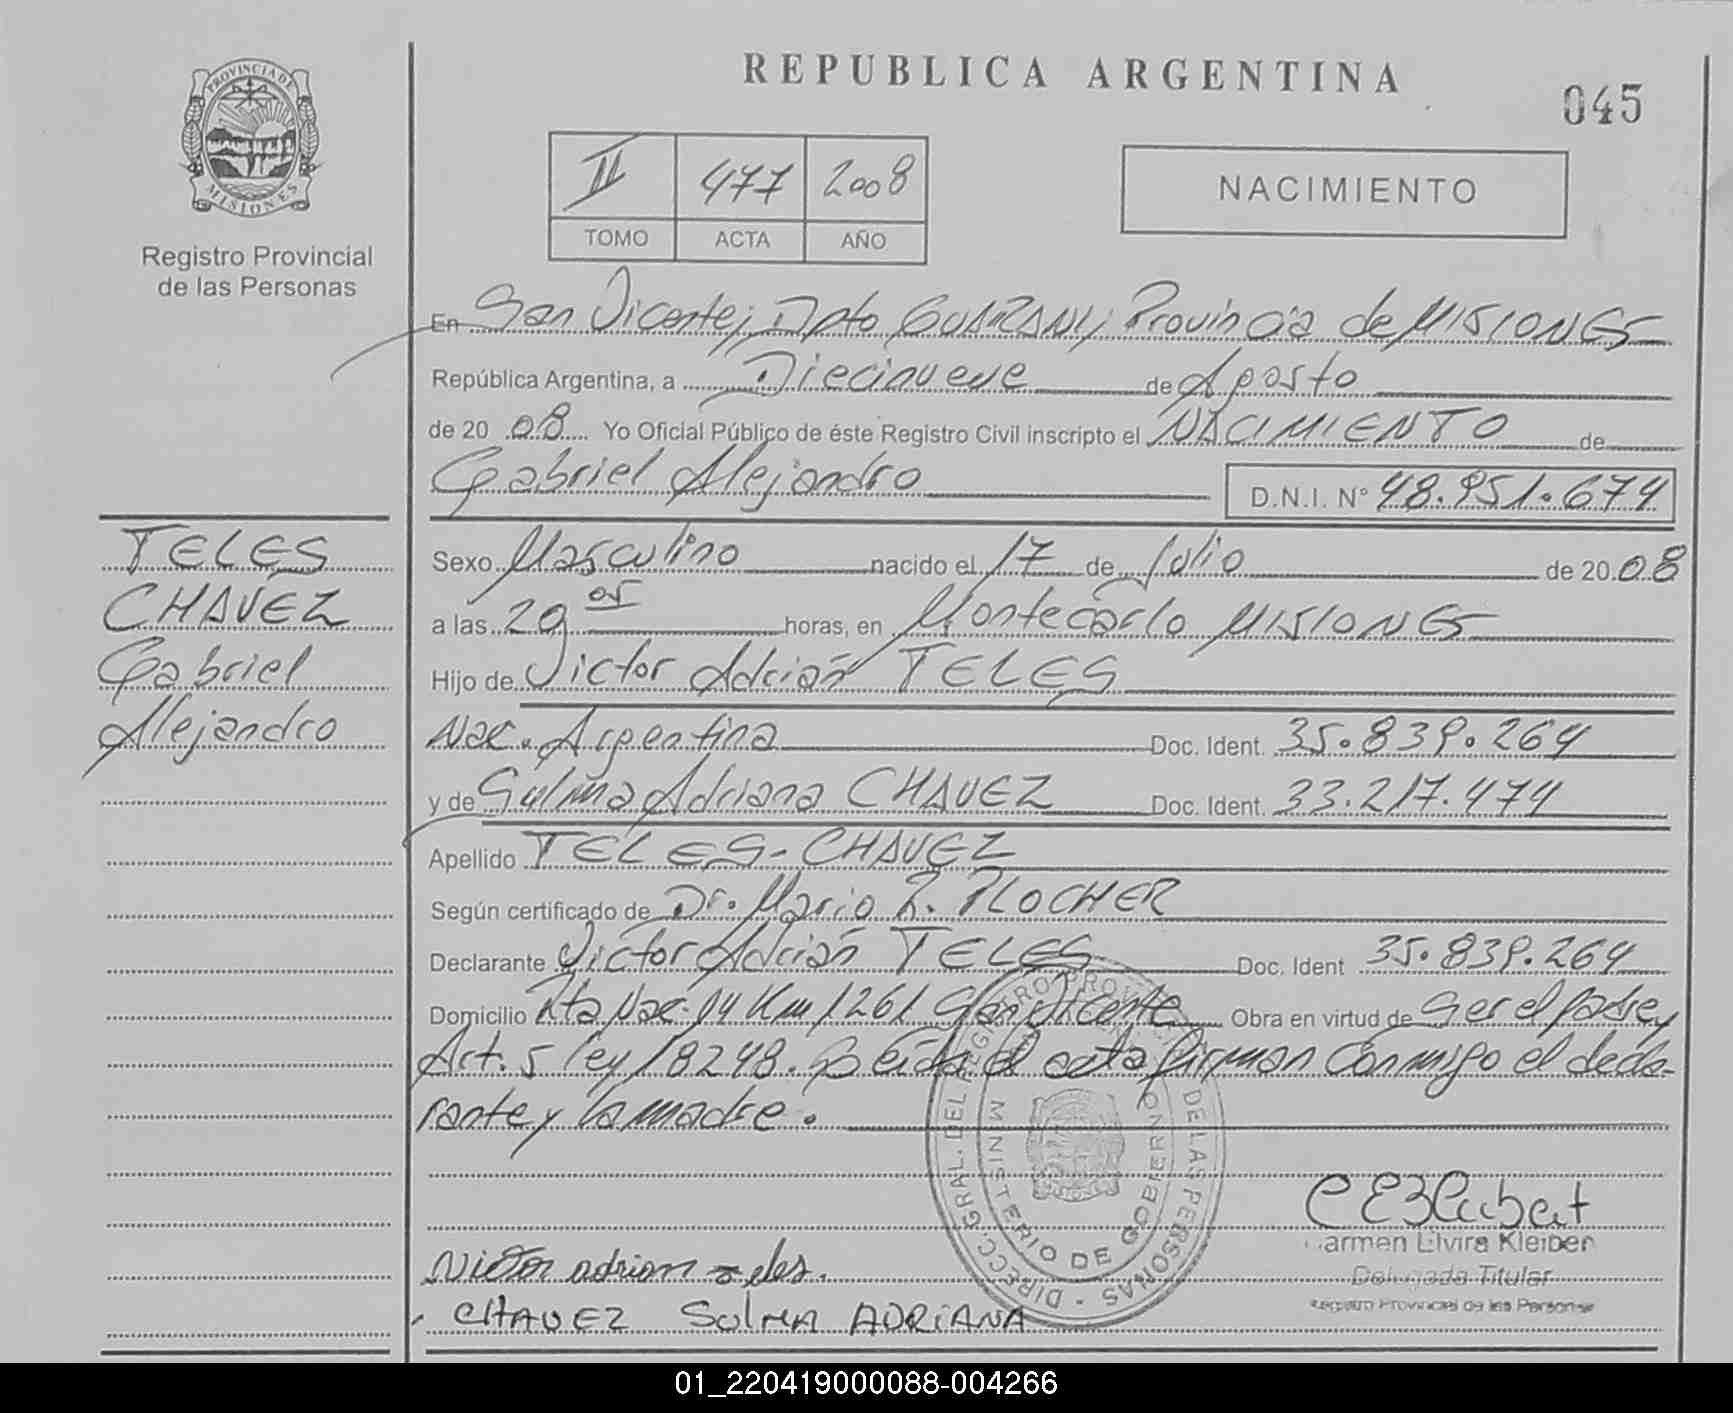 REPUBLICA ARGENTINA
045
PROVINCIA DE
MISIONES
Registro Provincial
de las Personas
II 477 2008
TOMO ACTA AÑO
NACIMIENTO
En San Vicente, Dpto GUARANI, Provincia de MISIONES
República Argentina, a Diecinueve de Agosto
de 2008 Yo Oficial Público de éste Registro Civil inscripto el NACIMIENTO de
Gabriel Alejandro D.N.I. Nº 48.951.674
TELES
CHAVEZ
Gabriel
Alejandro
Sexo Masculino nacido el 17 de Julio de 2008
a las 20 05 horas, en Montecarlo MISIONES
Hijo de Victor Adrián TELES
Nac. Argentina Doc. Ident. 35.839.264
y de Sulma Adriana CHAVEZ Doc. Ident. 33.217.474
Apellido TELES-CHAVEZ
Según certificado de Dr. Mario R. PLOCHER
Declarante Victor Adrián TELES Doc. Ident 35.839.264
Domicilio Rta Nac. 14 Km 1261 San Vicente Obra en virtud de ser el padre y
Art. 5 ley 18248. Leida el acta firman conmigo el decla-
rante y la madre.
DIRECC. GRAL. DEL REGISTRO PROVINCIAL DE LAS PERSONAS
MINISTERIO DE GOBIERNO
Carmen Elvira Kleiber
Delegada Titular
Registro Provincial de las Personas
Victor adrian teles.
CHAVEZ SULMA ADRIANA
01_220419000088-004266